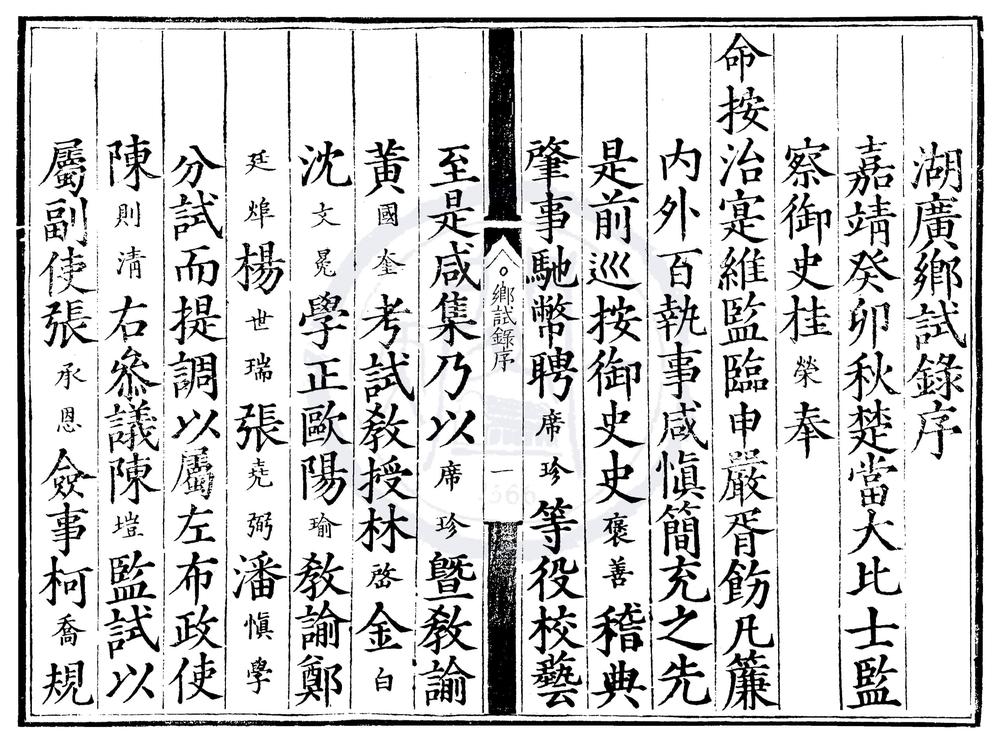 湖廣鄉試錄序
嘉靖癸卯秋楚當大比士監
察御史桂榮奉
命按治寔維監臨申嚴胥飭凡簾
内外百執事咸愼簡充之先
是前巡按御史史褒善稽典
肇事馳幣聘席珍等役校藝
鄉試錄序 一
至是咸集乃以席珍曁敎諭
黃國奎考試敎授林啓金白
沈文冕學正歐陽瑜敎諭鄭
廷㷆楊世瑞張堯弼潘愼學
分試而提調以屬左布政使
陳則清右叅議陳塏監試以
屬副使張承恩僉事柯喬規